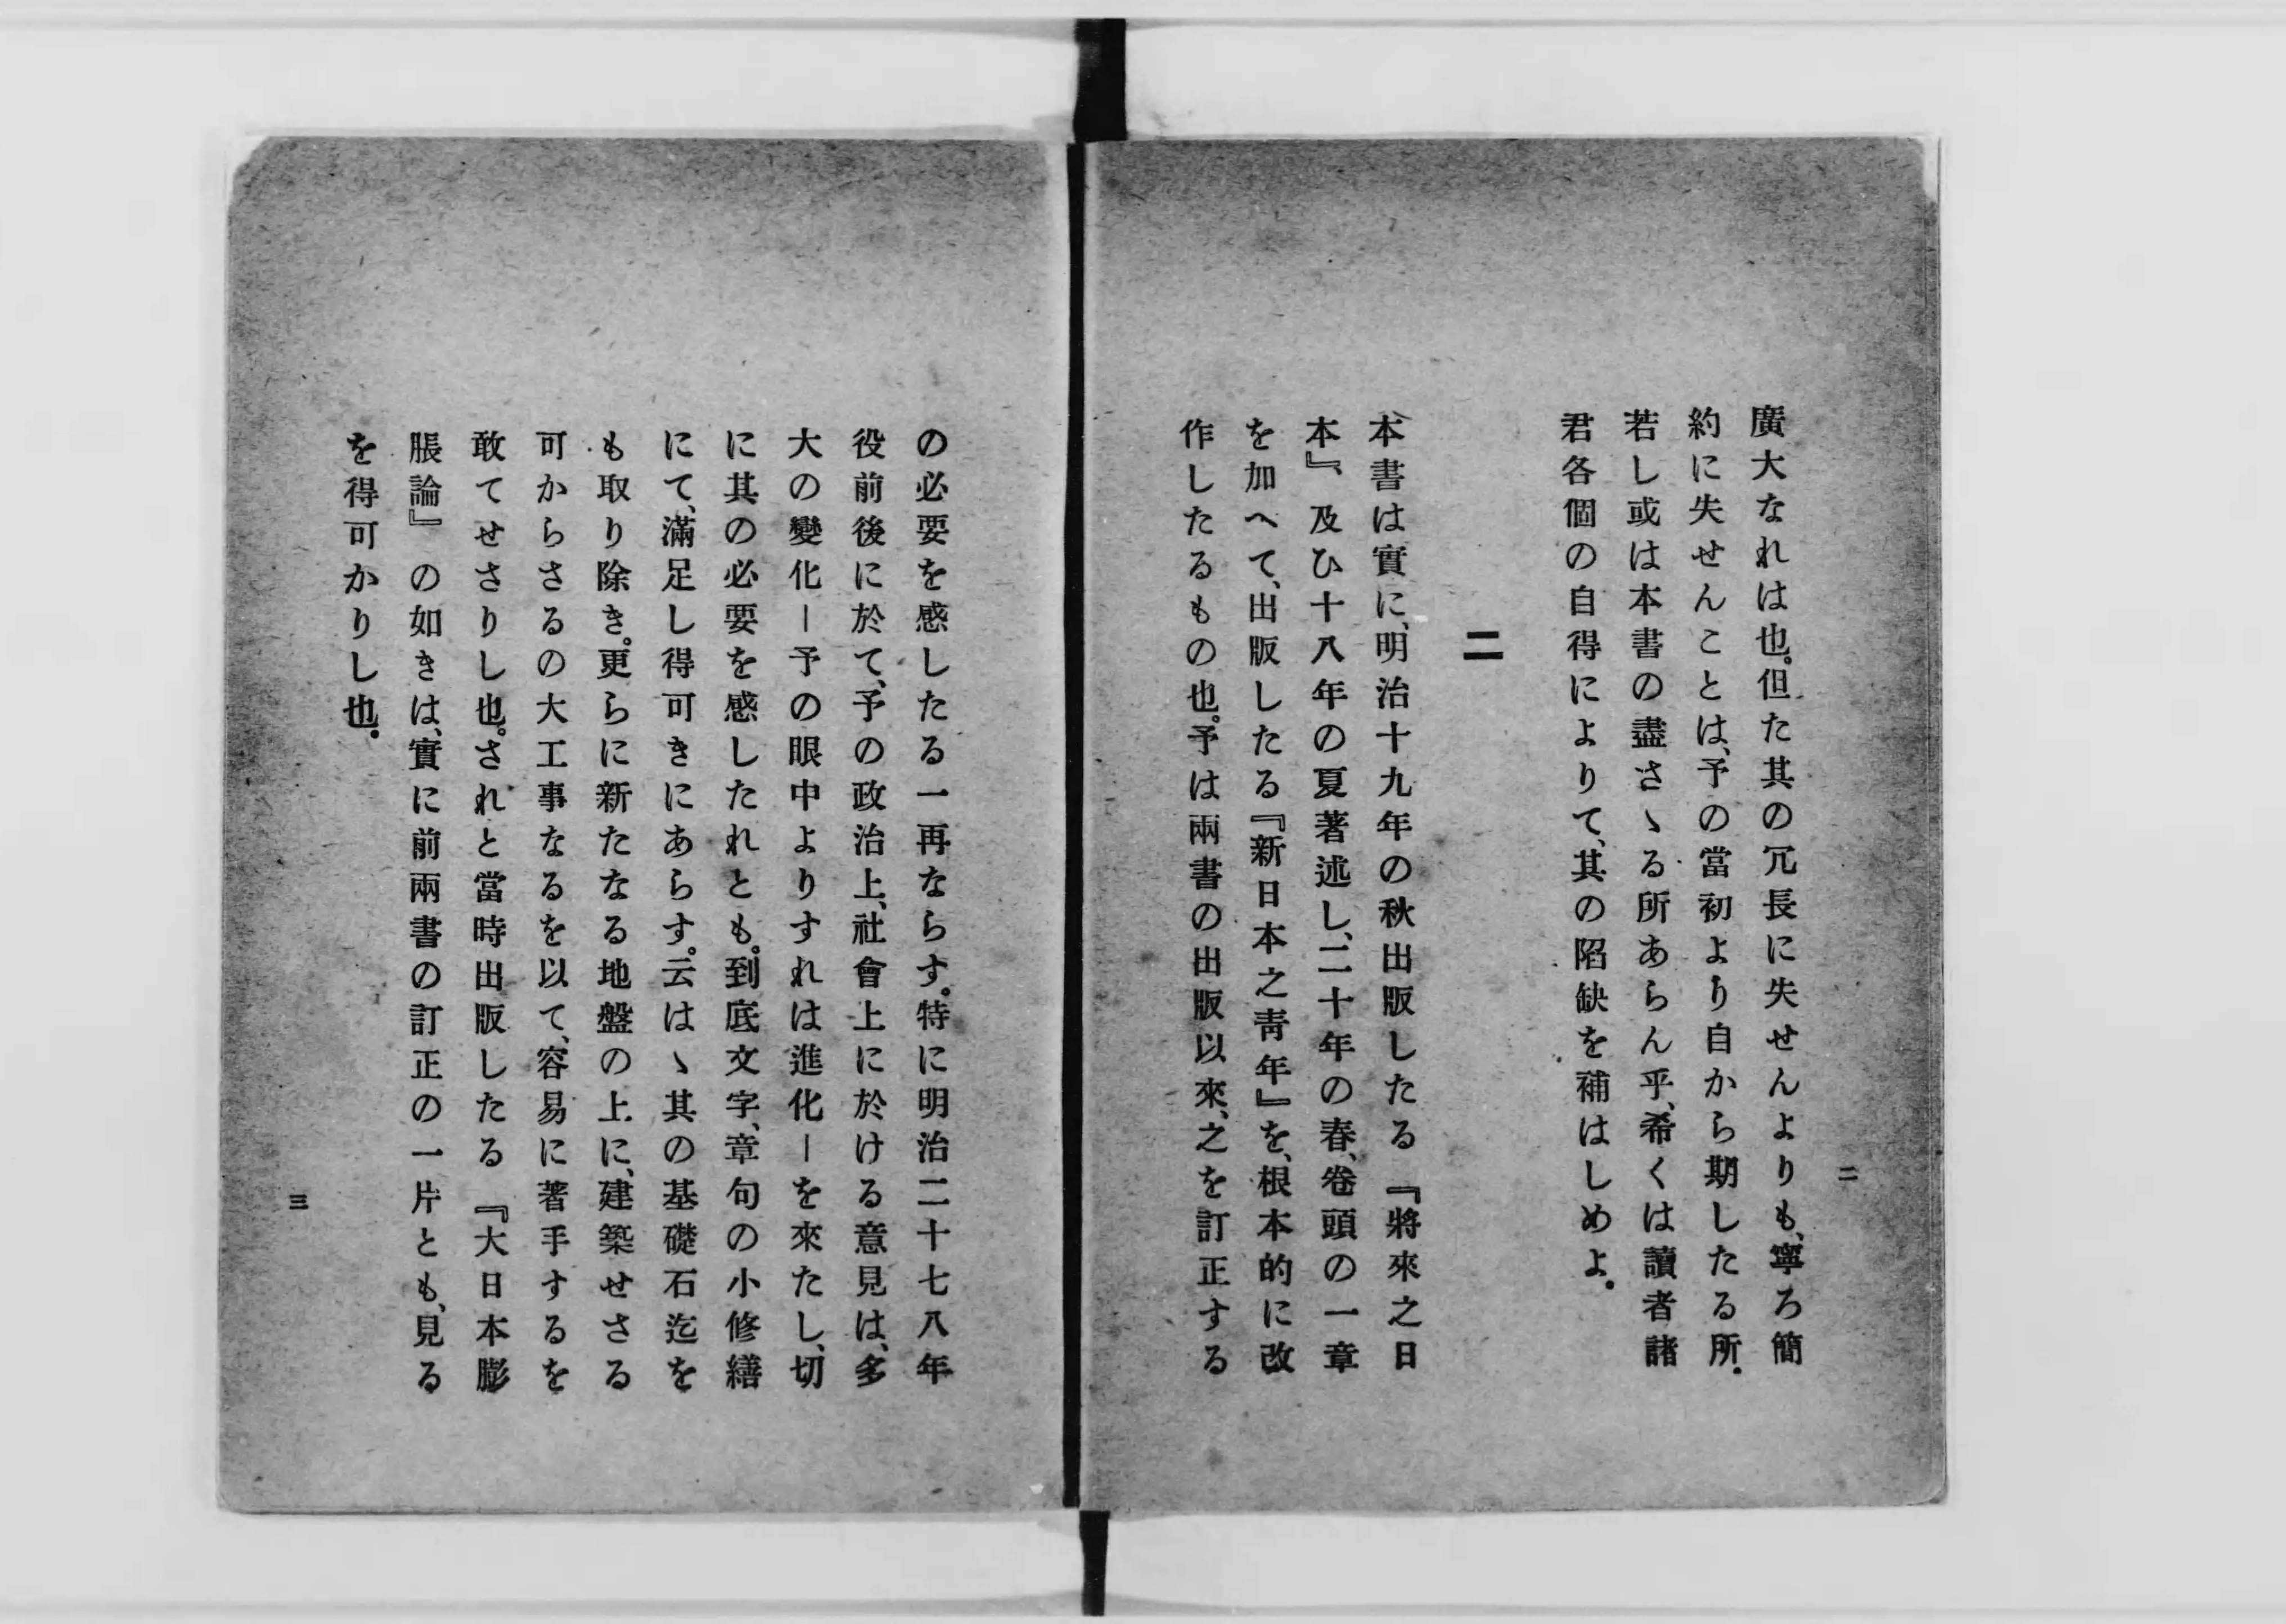 二
廣大なれは也。但た其の冗長に失せんよりも、寧ろ簡
約に失せんことは、予の當初より自から期したる所.
若し或は本書の盡さゝる所あらん乎、希くは讀者諸
君各個の自得によりて、其の陷缺を補はしめよ。
二
本書は實に、明治十九年の秋出版したる『將來之日
本』、及ひ十八年の夏著述し、二十年の春、卷頭の一章
を加へて、出版したる『新日本之靑年』を、根本的に改
作したるもの也。予は兩書の出版以來、之を訂正する
の必要を感したる一再ならす。特に明治二十七八年
役前後に於て、予の政治上、社會上に於ける意見は、多
大の變化―予の眼中よりすれは進化―を來たし、切
に其の必要を感したれとも。到底文字、章句の小修繕
にて、滿足し得可きにあらす。云はゝ其の基礎石迄を
も取り除き。更らに新たなる地盤の上に、建築せさる
可からさるの大工事なるを以て、容易に著手するを
敢てせさりし也。されと當時出版したる『大日本膨
脹論』の如きは、實に前兩書の訂正の一片とも、見る
を得可かりし也。
三